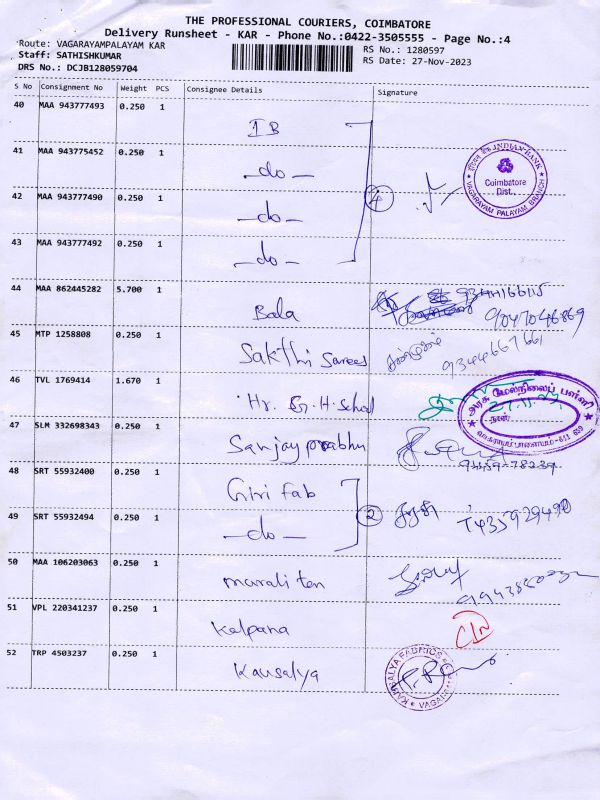 THE PROFESSIONAL COURIERS, COIMBATORE
Delivery Runsheet - KAR - Phone No.:0422-3505555 - Page No.:4
Route: VAGARAYAMPALAYAM KAR
RS No.: 1280597
Staff: SATHISHKUMAR
RS Date: 27-Nov-2023
DRS No.: DCJB128059704
S No Consignment No Weight PCS Consignee Details Signature
40 MAA 943777493 0.250 1
IB
41 MAA 943775452 0.250 1
-do-
INDIAN BANK
Coimbatore Dist.
VAGARAYAM PALAYAM BRANCH
42 MAA 943777490 0.250 1
4
-do-
43 MAA 943777492 0.250 1
-do-
44 MAA 862445282 5.700 1
Bala
9047046869
45 MTP 1258808 0.250 1
Sakthi Sarees
9344667661
46 TVL 1769414 1.670 1
Hr. G.H. School
அரசு மேல்நிலைப் பள்ளி
47 SLM 332698343 0.250 1
Sanjay prabhu
48 SRT 55932400 0.250 1
Giri fab
2
49 SRT 55932494 0.250 1
-do-
50 MAA 106203063 0.250 1
murali tex
51 VPL 220341237 0.250 1
Kalpana
52 TRP 4503237 0.250 1
Kausalya
KAUSALYA FABRICS